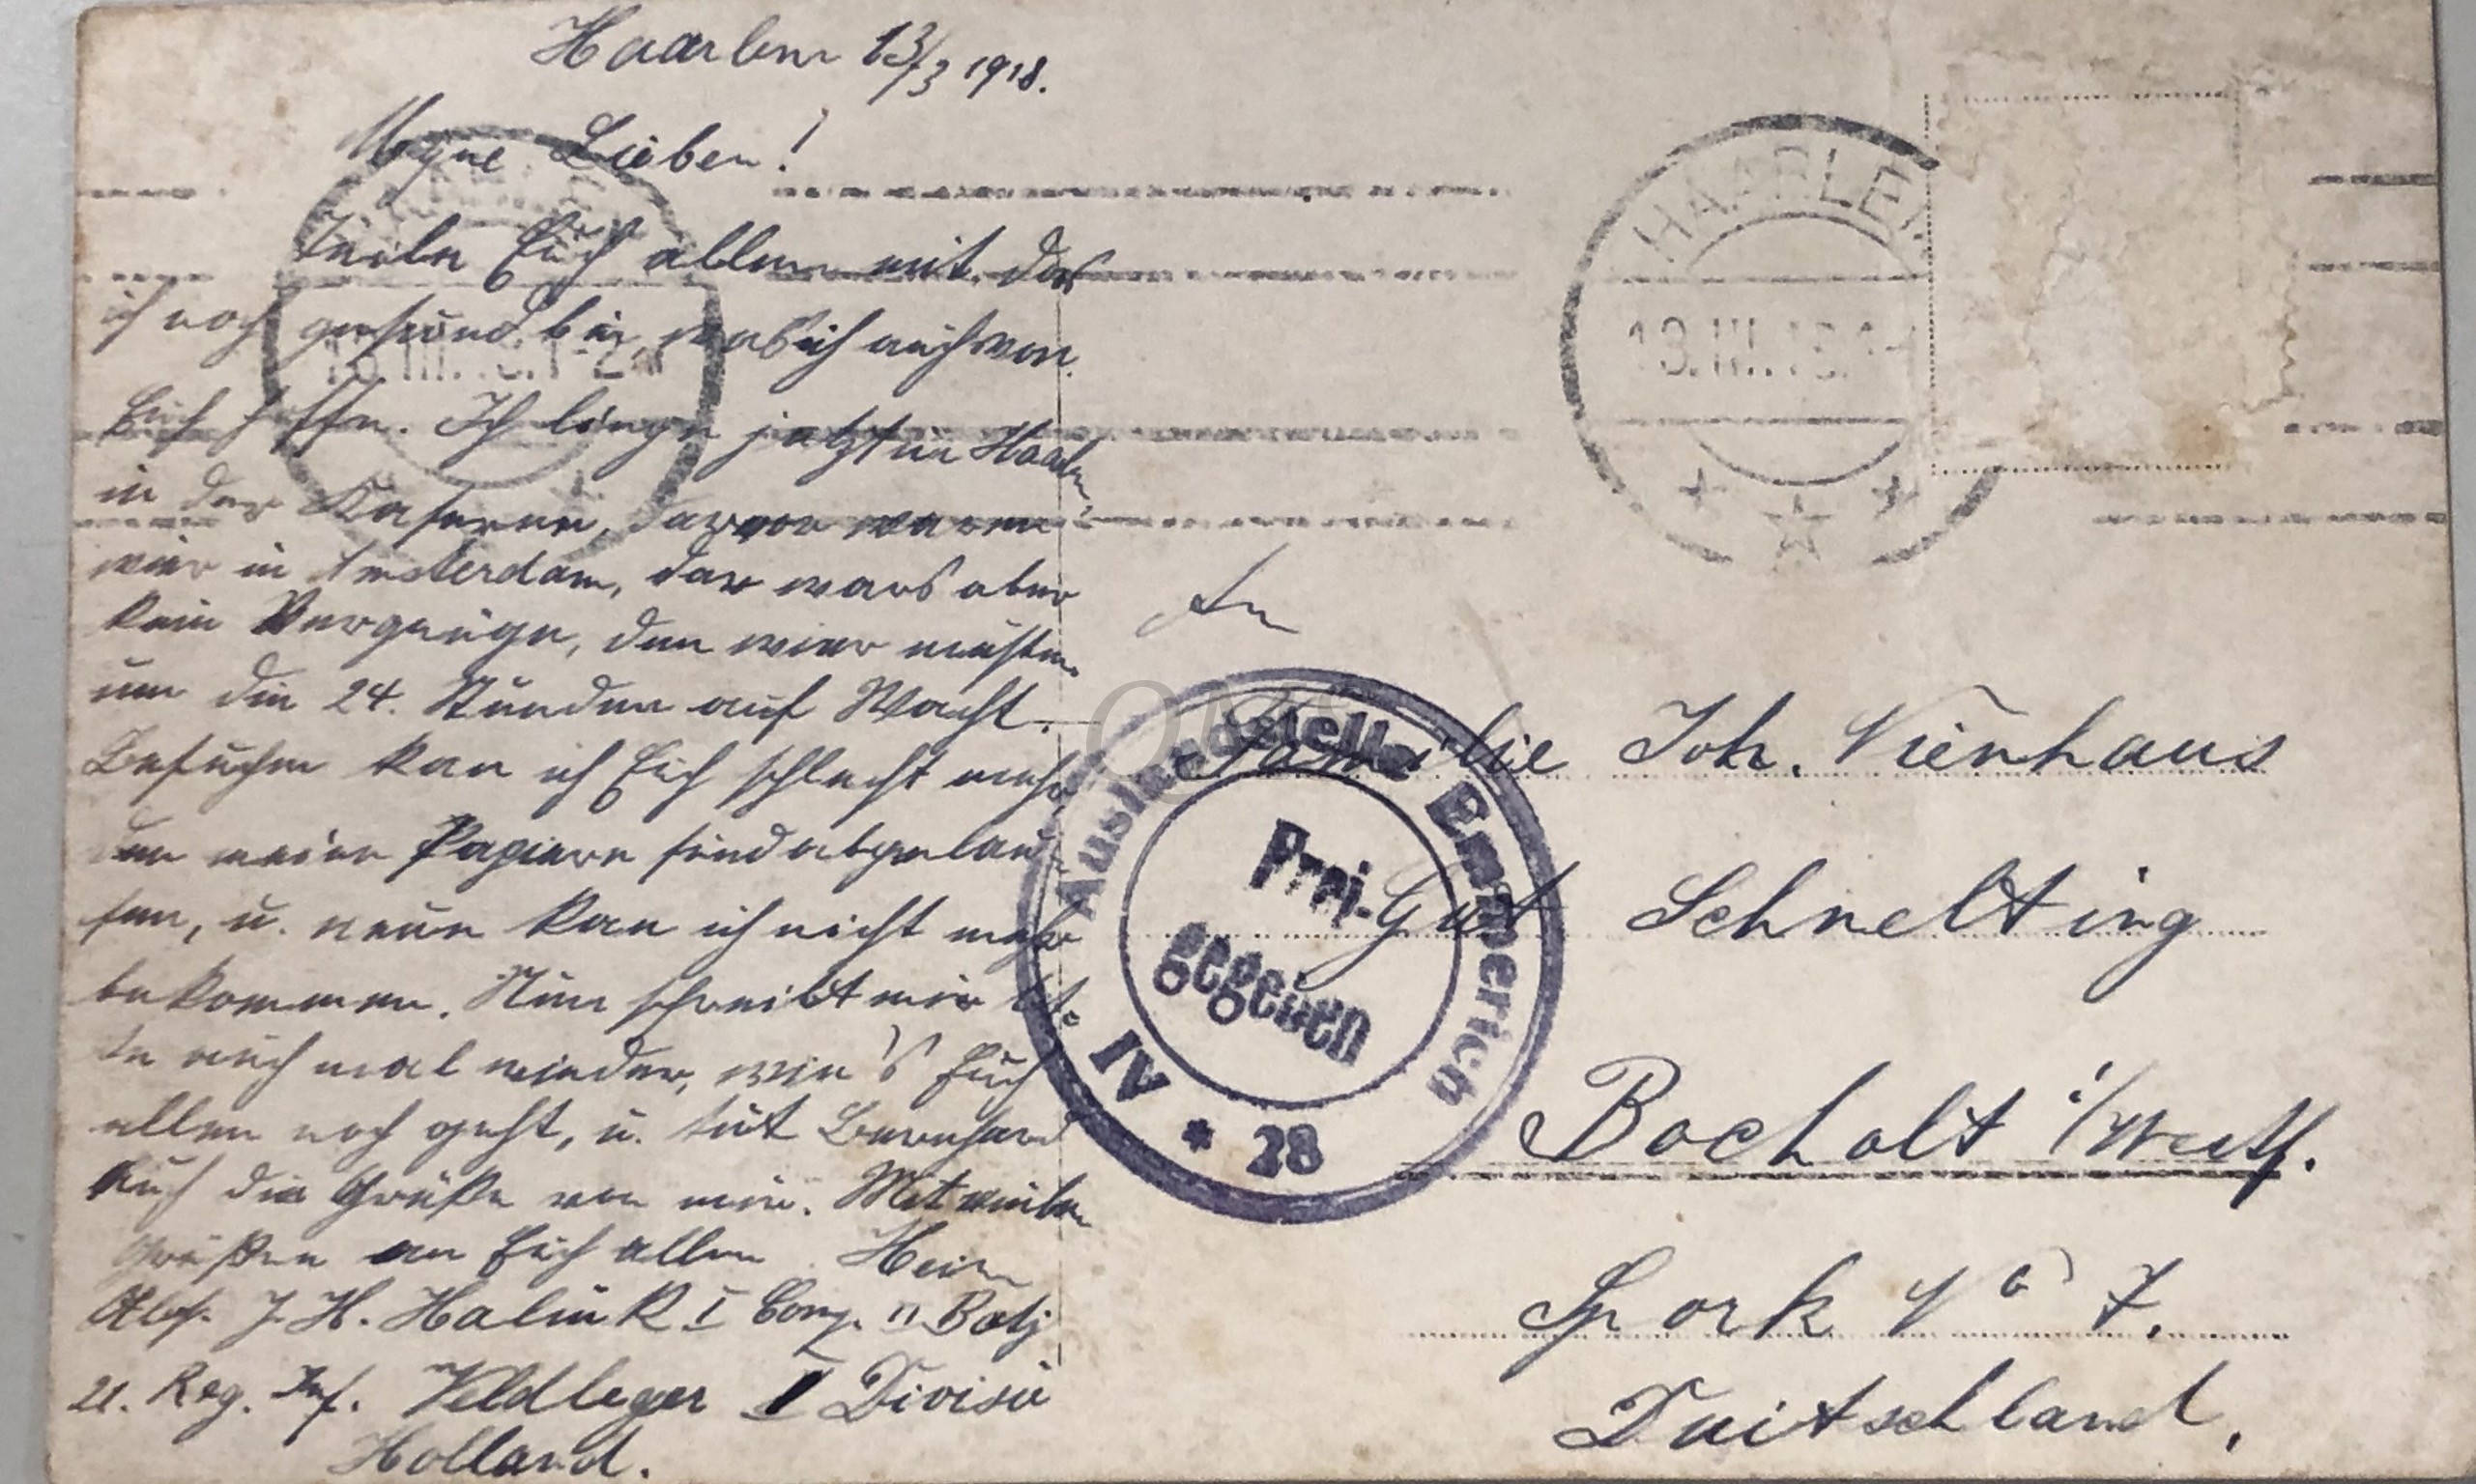 Haarlem 13/3 1918.
Meyne Lieben!
Teile Euch allen mit, das
ich noch gesund bin, was ich auch von
Euch hoffe. Ich liege jetzt in Haarlem
in der Kaserne, darvor waren
wier in Amsterdam, dar wars aber
kein Vergnüge, den wier musten
um die 24. Stunden auf Wacht.
Besuchen kan ich Euch schlecht mehr
den meine Papiere sind abgelau-
fen, u. neue kan ich nicht mehr
bekommen. Nun schreibt mir bit-
te auch mal wieder, wie's Euch
allen noch geht, u. tut Bernhard
auch die Grüße von mir. Mit vielen
Grüßen an Euch allen Hein
Abs. J. H. Halink I Comp. II Batj
21. Reg. Inf. Veldleger II Divisie
Holland.
HAARLEM
13.III.18.1-2
HAARLEM
13.III.18.1-
An
Familie Joh. Vienhaus
Gut Schnelting
Bocholt i/Westf.
Spork No 7.
Duitschland,
Auslandstelle Emmerich
Frei-
gegeben
IV * 28